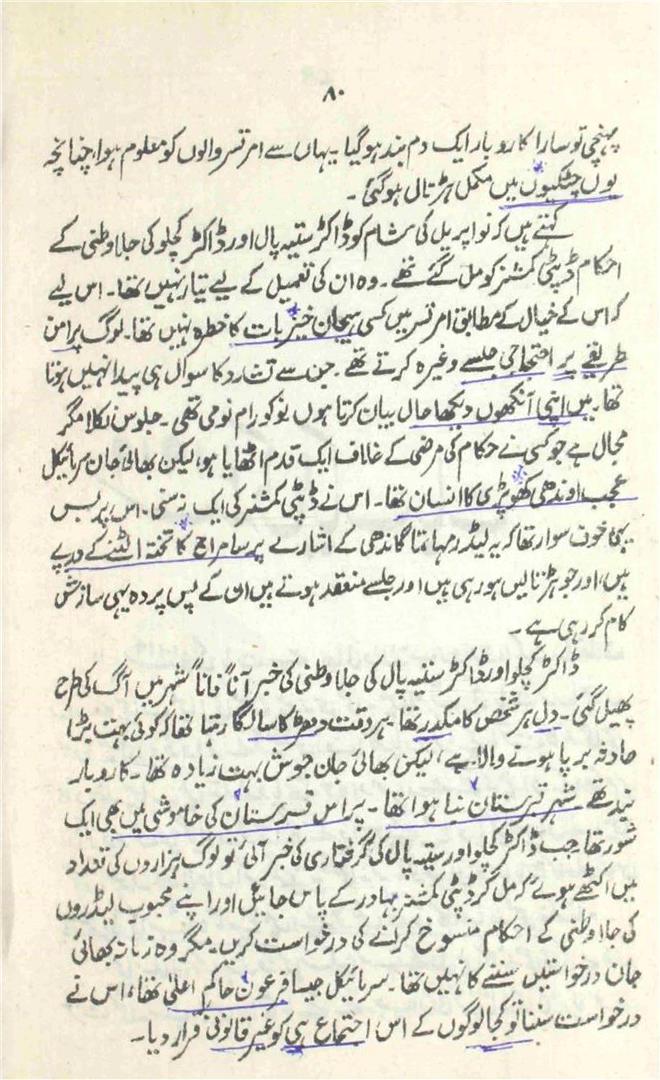 ۸۰
پہنچی تو سارا کاروبار ایک دم بند ہو گیا۔ یہاں سے امرتسر والوں کو معلوم ہوا، چنانچہ
یوں چٹکیوں میں مکمل ہڑتال ہو گئی۔
کہتے ہیں کہ نو اپریل کی شام کو ڈاکٹر ستیہ پال اور ڈاکٹر کچلو کی جلاوطنی کے
احکام ڈپٹی کمشنر کو مل گئے تھے۔ وہ ان کی تعمیل کے لیے تیار نہیں تھا۔ اس لیے
کہ اس کے خیال کے مطابق امرتسر میں کسی ہیجان خیز بات کا خطرہ نہیں تھا۔ لوگ پرامن
طریقے پر احتجاجی جلسے وغیرہ کرتے تھے۔ جن سے تشدد کا سوال ہی پیدا نہیں ہوتا
تھا۔ میں اپنی آنکھوں دیکھا حال بیان کرتا ہوں نو کو رام نومی تھی۔ جلوس نکلا مگر
مجال ہے جو کسی نے حکام کی مرضی کے خلاف ایک قدم اٹھایا ہو، لیکن بھائی جان سر مائیکل
عجب اوندھی کھوپڑی کا انسان تھا۔ اس نے ڈپٹی کمشنر کی ایک نہ سنی۔ اس پر بس
یہی خوف سوار تھا کہ یہ لیڈر مہاتما گاندھی کے اشارے پر سامراج کا تختہ الٹنے کے درپے
ہیں، اور جو ہڑتالیں ہو رہی ہیں اور جلسے منعقد ہوتے ہیں ان کے پس پردہ یہی سازش
کام کر رہی ہے۔
ڈاکٹر کچلو اور ڈاکٹر ستیہ پال کی جلاوطنی کی خبر آناً فاناً شہر میں آگ کی طرح
پھیل گئی۔ دل ہر شخص کا مکدر تھا۔ ہر وقت دھڑکا سا لگا رہتا تھا کہ کوئی بہت بڑا
حادثہ برپا ہونے والا ہے، لیکن بھائی جان جوش بہت زیادہ تھا۔ کاروبار
بند تھے شہر قبرستان بنا ہوا تھا۔ پر اس قبرستان کی خاموشی میں بھی ایک
شور تھا جب ڈاکٹر کچلو اور ستیہ پال کی گرفتاری کی خبر آئی تو لوگ ہزاروں کی تعداد
میں اکٹھے ہوئے کہ مل کر ڈپٹی کمشنر بہادر کے پاس جائیں اور اپنے محبوب لیڈروں
کی جلاوطنی کے احکام منسوخ کرانے کی درخواست کریں۔ مگر وہ زمانہ بھائی
جان درخواستیں سننے کا نہیں تھا۔ سر مائیکل جیسا فرعون حاکم اعلیٰ تھا، اس نے
درخواست سننا تو کجا لوگوں کے اس اجتماع ہی کو غیر قانونی قرار دیا۔